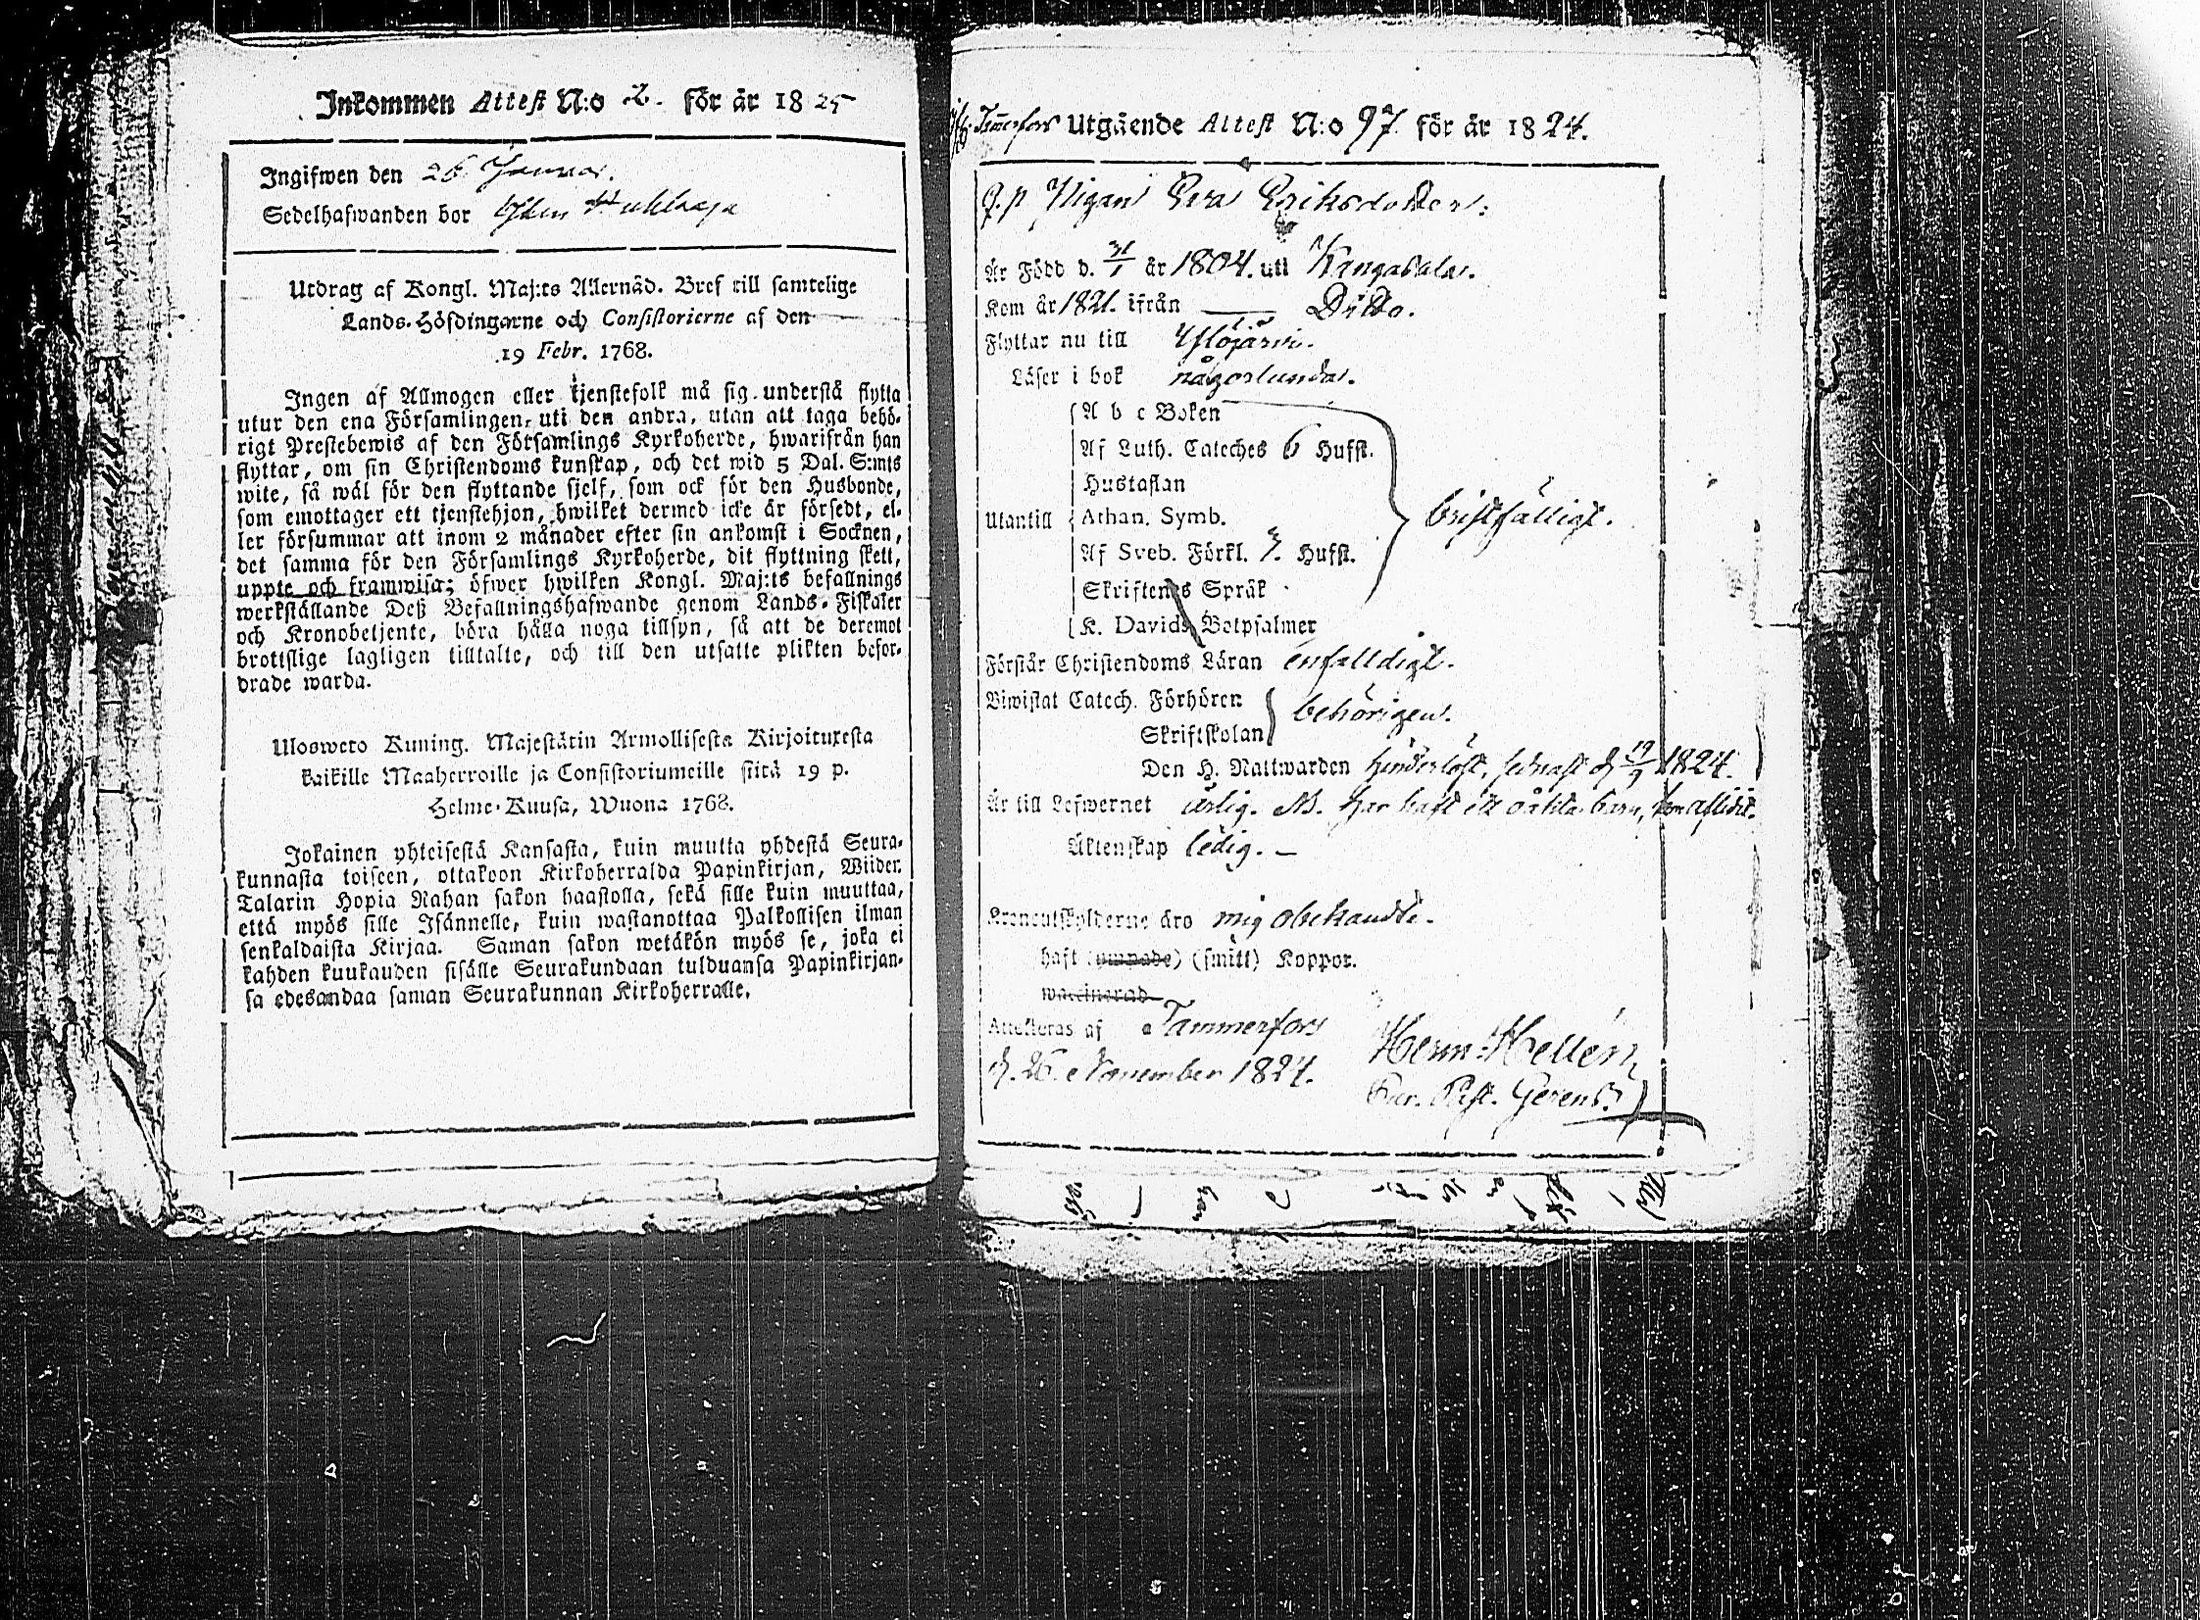 Inkommen Attest N:o 2. för år 1825
Ingifwen den 26 Januar.
Sedelhafwanden bor
Utdrag af Kongl. Maj:ts Allernåd. Bref till samtelige
Lands-Höfdingarne och Consistorierne af den
19 Febr. 1768.
Ingen af Allmogen eller tjenstefolk må sig understå flytta
utur den ena Församlingen, uti den andra, utan att taga behö-
rigt Prestebewis af den Församlings Kyrkoherde, hwarifrån han
flyttar, om sin Christendoms kunskap, och det wid 5 Dal. S:mts
wite, så wäl för den flyttande sjelf, som ock för den Husbonde,
som emottager ett tjenstehjon, hwilket dermed icke är försedt, el-
ler försummar att inom 2 månader efter sin ankomst i Socknen,
det samma för den Församlings Kyrkoherde, dit flyttning skett,
uppte och framwisa; öfwer hwilken Kongl. Maj:ts befallnings
werkställande Deß Befallningshafwande genom Lands-Fiskaler
och Kronobetjente, böra hålla noga tillsyn, så att de deremot
brottslige lagligen tilltalte, och till den utsatte plikten befor-
drade warda.
Ulosweto Kuning. Majestätin Armollisesta Kirjoituxesta
kaikille Maaherroille ja Consistoriumeille siitä 19 p.
Helme-Kuusa, Wuona 1768.
Jokainen yhteisestä Kansasta, kuin muutta yhdestä Seura-
kunnasta toiseen, ottakoon Kirkoherralda Papinkirjan, Wiiden
Talarin Hopia Rahan sakon haastolla, sekä sille kuin muuttaa,
että myös sille Isännelle, kuin wastanottaa Palkollisen ilman
senkaldaista Kirjaa. Saman sakon wetäkön myös se, joka ei
kahden kuukauden sisälle Seurakundaan tulduansa Papinkirjan-
sa edesandaa saman Seurakunnan Kirkoherralle.
Tammerfors Utgående Attest N:o 97. för år 1824.
Pigan Eva Eriksdotter.
Är Född d. 31/1 år 1804. uti Kangasala.
Kom år 1821. ifrån Ditto.
Flyttar nu till Ylöjärvi.
Läser i bok någorlunda.
A b c Boken
Af Luth. Cateches 6 Hufst.
Hustaflan
Utantill Athan. Symb. bristfälligt.
Af Sveb. Förkl. 7. Hufst.
Skriftenes Språk
K. Davids Botpsalmer
Förstår Christendoms Läran enfalldigt.
Biwistat Catech. Förhören behörigen.
Skriftskolan
Den H. Nattwarden hinderlöst, sednast d. 19/9 1824.
Är till Lefwernet ärlig. NB. har haft ett oäkta barn, som aflidit.
Äktenskap ledig. —
Kronoutskylderne äro mig obekandte.
haft (ympade) (smitt) Koppor.
waccinerad
Attesteras af Tammerfors
d. 26. November 1824. Herm: Hellén